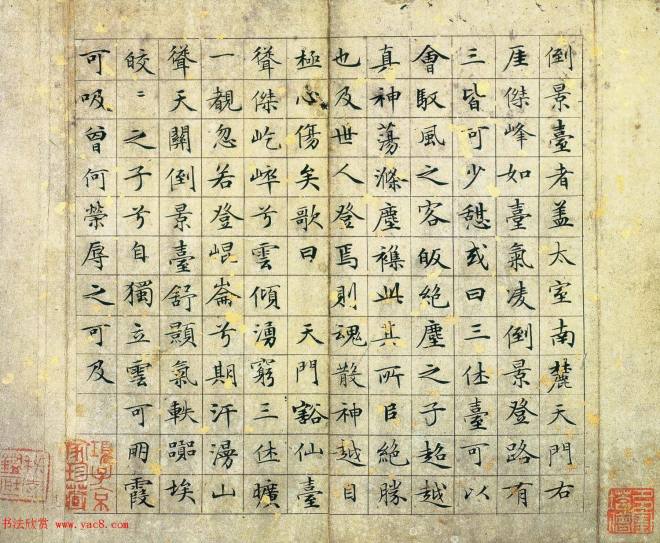 倒景臺者蓋太室南麓天門右
厓傑峰如臺氣凌倒景登路有
三皆可少憇或曰三休臺可以
會馭風之客皈絕塵之子超越
真神蕩滌塵襟此其所㠯絕勝
也及世人登焉則魂散神越目
極心傷矣歌曰 天門豁仙臺
聳傑屹崪兮雲傾湧窮三休曠
一覩忽若登崐崙兮期汗漫山
聳天關倒景臺舒顥氣軼囂埃
皎〻之子兮自獨立雲可朋霞
可吸曾何榮辱之可及
項子京家珍藏
书法欣赏 www.yac8.com